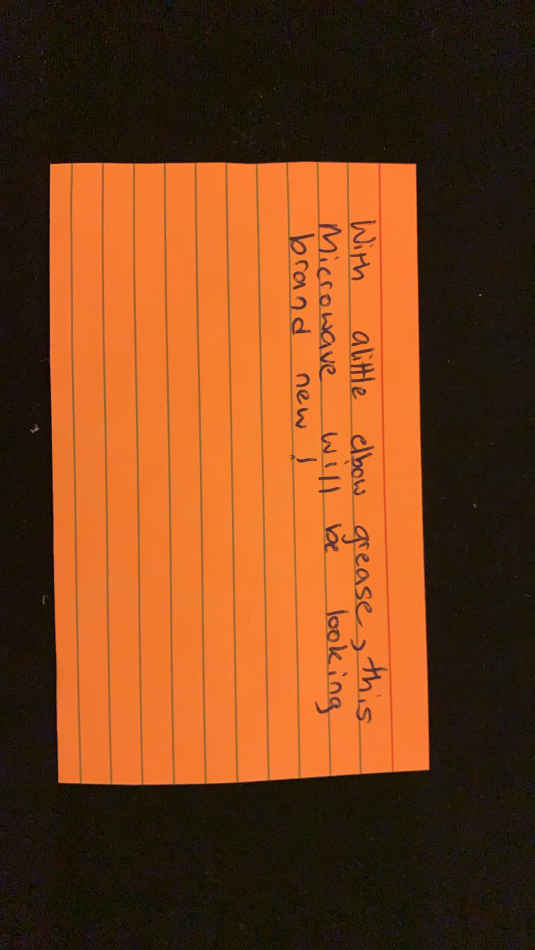 With alittle elbow grease, this
Microwave will be looking
brand new!